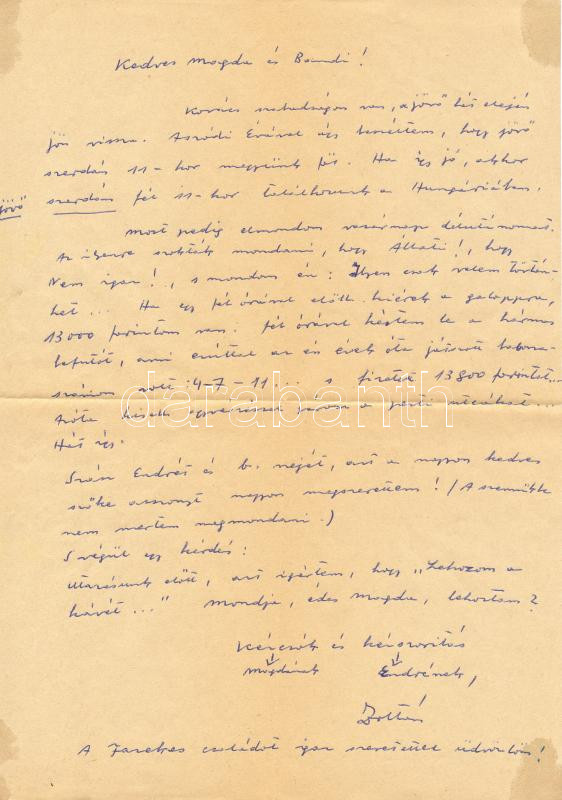 Kedves Magda és Bandi!
Kovács szabadságon van, a jövő hét elején
jön vissza. Aszódi Évával úgy beszéltem, hogy jövő
szerdán 11-kor megyünk fel. Ha így jó, akkor
jövő szerdán fél 11-kor találkozunk a Hungáriában.
Most pedig elmondom vasárnapi délutánomat.
Az ilyenre szokták mondani, hogy Állati!, hogy
Nem igaz!, s mondom én: Ilyen csak velem történ-
het... Ha egy fél órával előbb kiérek a galoppra,
13000 forintom van. Fél órával késtem le a hármas
befutót, ami ezúttal az én évek óta játszott
számom volt: 4-7-11... s fizetett 13800 forintot...
Azóta kissé járom a pesti utcákat...
Hát így.
Szász Endrét és b. nejét, azt a nagyon kedves
szőke asszonyt nagyon megszerettem! (A szemükbe
nem mertem megmondani.)
S végül egy kérdés:
utazásunk előtt, azt ígértem, hogy „Lehozom a
kávét..." Mondja, édes Magda, lehoztam?
Kézcsók és kézszorítás
Magdának Endrének,
Zoltán
A családot igaz szeretettel üdvözlöm!
darabanth